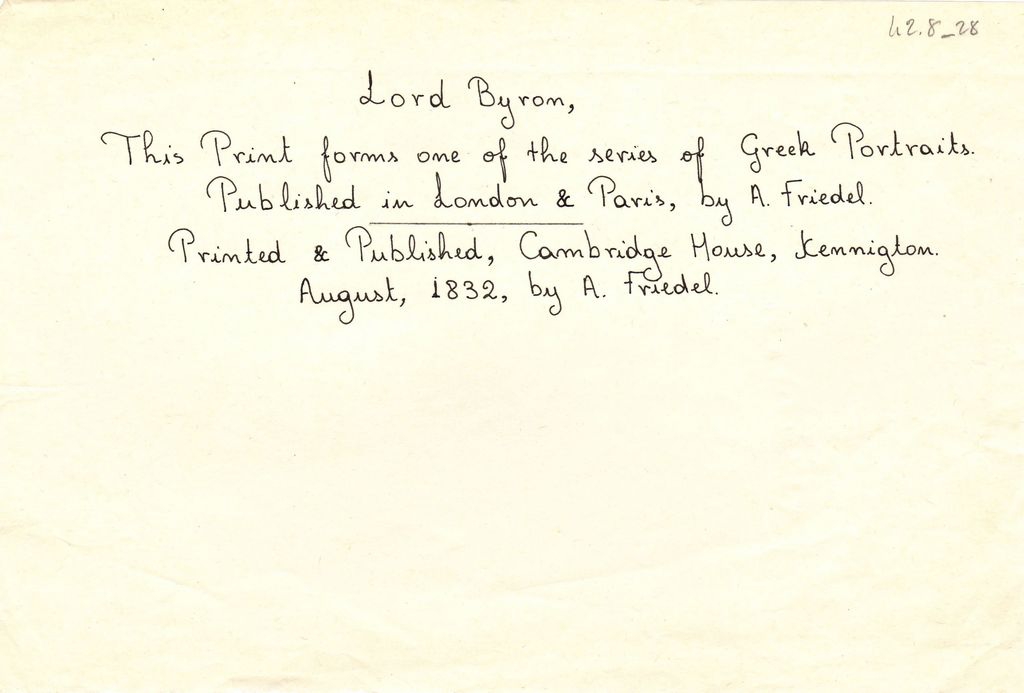 42.8_28
Lord Byron,
This Print forms one of the series of Greek Portraits.
Published in London & Paris, by A. Friedel.
Printed & Published, Cambridge House, Kennigton.
August, 1832, by A. Friedel.